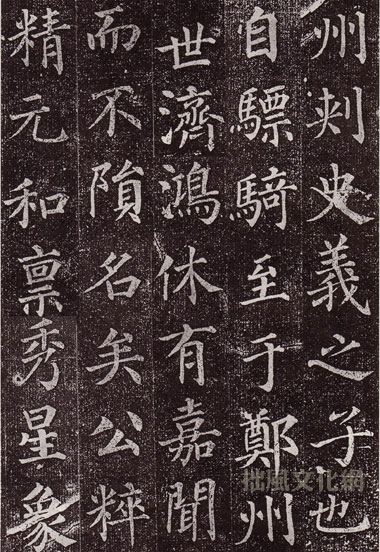 州刾史義之子也
自驃騎至于鄭州
世濟鴻休有嘉聞
而不隕名矣公粹
精元和禀秀星象
批風文化網